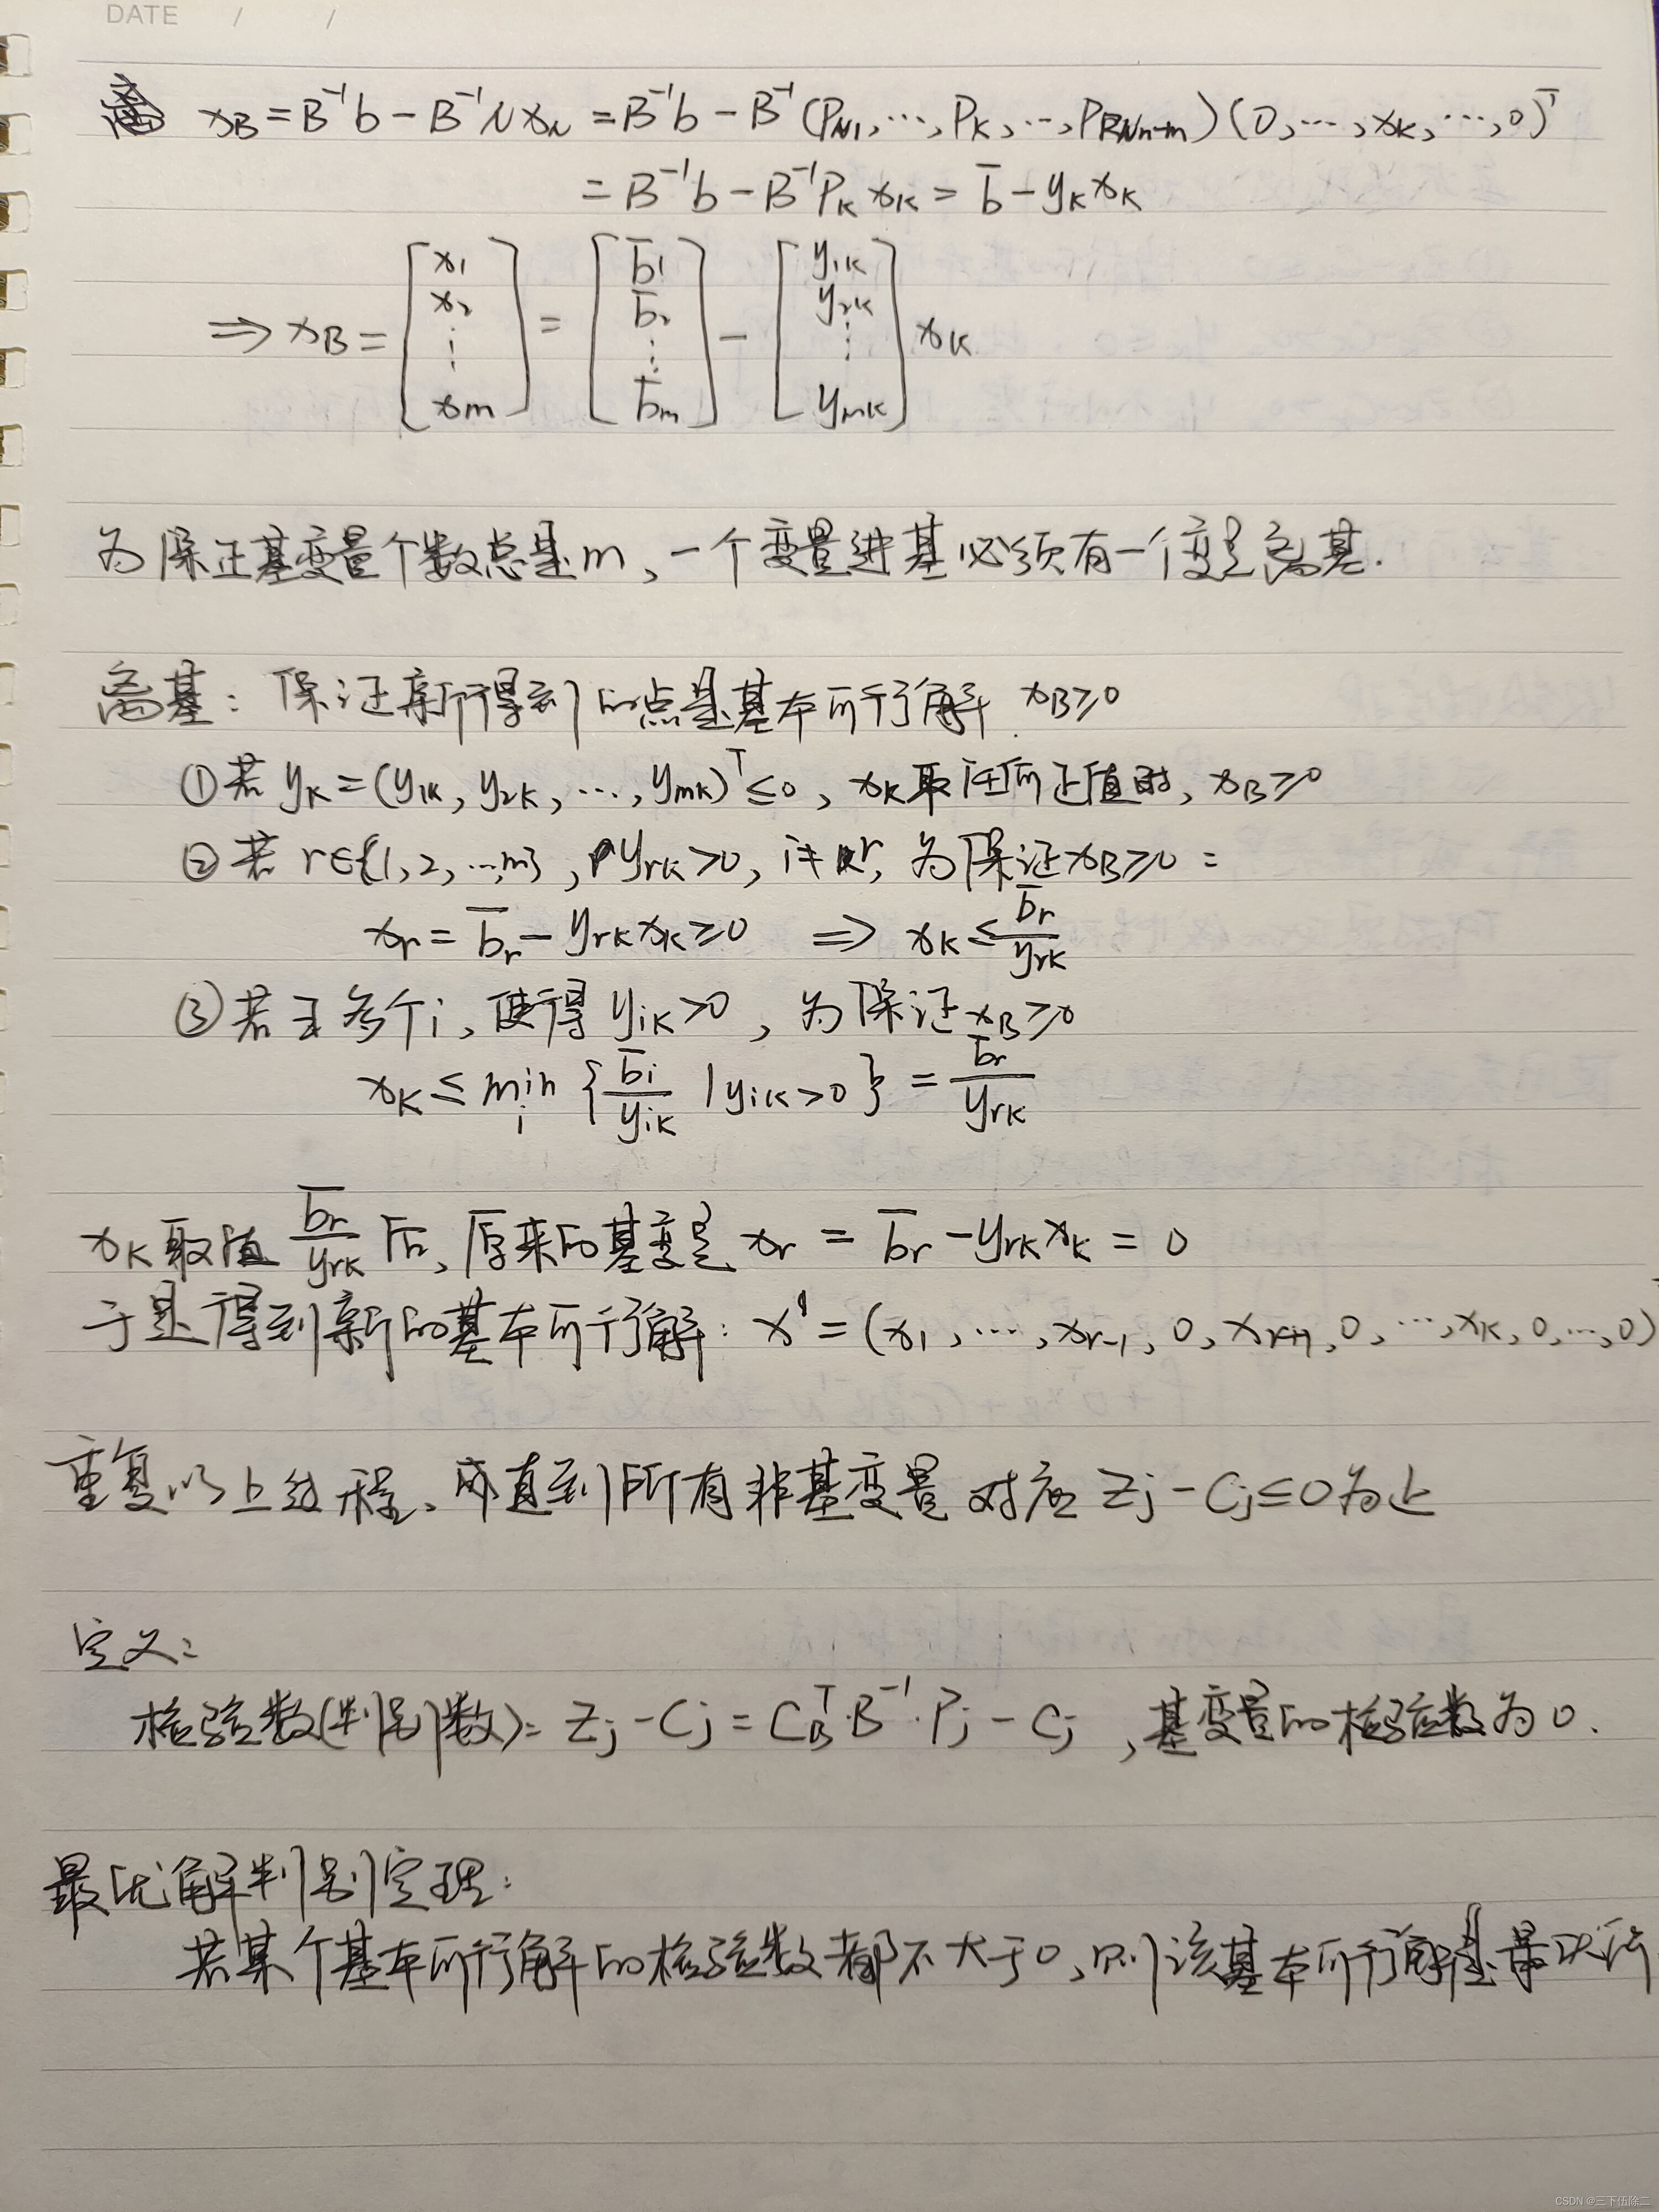 DATE / /
x_B = B⁻¹b - B⁻¹N x_N = B⁻¹b - B⁻¹(P_N1, …, P_K, …, P_Nn-m)(0, …, x_K, …, 0)ᵀ
= B⁻¹b - B⁻¹P_K x_K = b̄ - y_K x_K
⇒ x_B = [x_1 x_2 ⋮ x_m] = [b̄_1 b̄_2 ⋮ b̄_m] - [y_1K y_2K ⋮ y_mK] x_K
为保证基变量个数总是m、一个变量进基必须有一个变量离基.
离基: 保证新得到的点是基本可行解. x_B≥0
①若 y_K = (y_1K, y_2K, …, y_mK)ᵀ ≤ 0, x_K取任何正值时, x_B≥0
②若 r∈{1,2,…,m}, y_rK>0, i≠r, 为保证x_B≥0:
x_r = b̄_r - y_rK x_K ≥ 0 ⇒ x_K ≤ b̄_r/y_rK
③若有多个i, 使得 y_iK>0, 为保证x_B≥0
x_K ≤ min_i {b̄_i/y_iK | y_iK>0} = b̄_r/y_rK
x_K取值 b̄_r/y_rK 后, 原来的基变量 x_r = b̄_r - y_rK x_K = 0
于是得到新的基本可行解: x' = (x_1, …, x_r-1, 0, x_r+1, 0, …, x_K, 0, …, 0)
重复以上过程、直到所有非基变量对应 Z_j - C_j ≤ 0 为止
定义:
检验数(判别数): Z_j - C_j = C_Bᵀ·B⁻¹·P_j - C_j , 基变量的检验数为0.
最优解判别定理:
若某个基本可行解的检验数都不大于0, 则该基本可行解是最优解
CSDN @三下伍除二